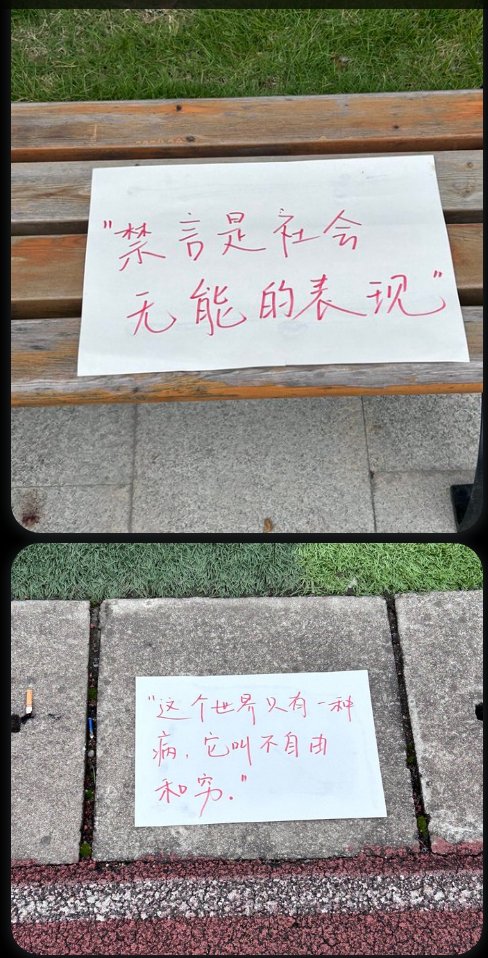 "禁言是社会
无能的表现"
"这个世界只有一种
病，它叫不自由
和穷."